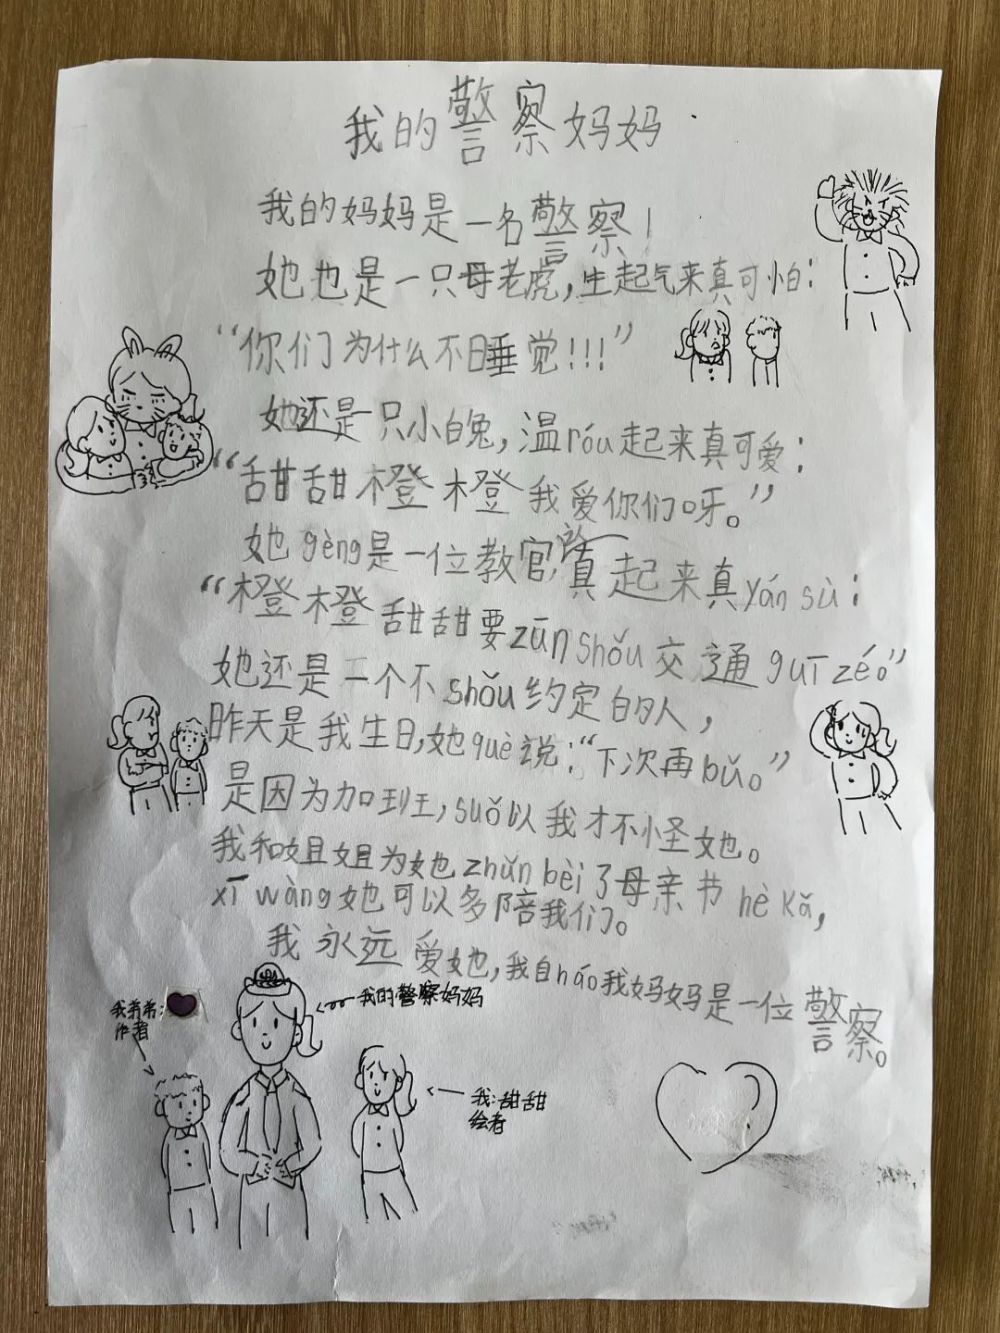 我的警察妈妈
我的妈妈是一名警察!
她也是一只母老虎,生起气来真可怕:
“你们为什么不睡觉!!!”
她还是一只小白兔,温róu起来真可爱:
“甜甜橙橙我爱你们呀。”
她gèng是一位教官,真起来真yán sù:
“橙橙甜甜要zūn shǒu交通guī zé。”
她还是一个不shǒu约定的人,
昨天是我生日,她què说:“下次再bǔ。”
是因为加班,suǒ以我才不怪她。
我和姐姐为她zhǔn bèi了母亲节hè kǎ,
xī wàng她可以多陪我们。
我永远爱她,我自háo我妈妈是一位警察。
我的警察妈妈
作者
我:甜甜
绘者